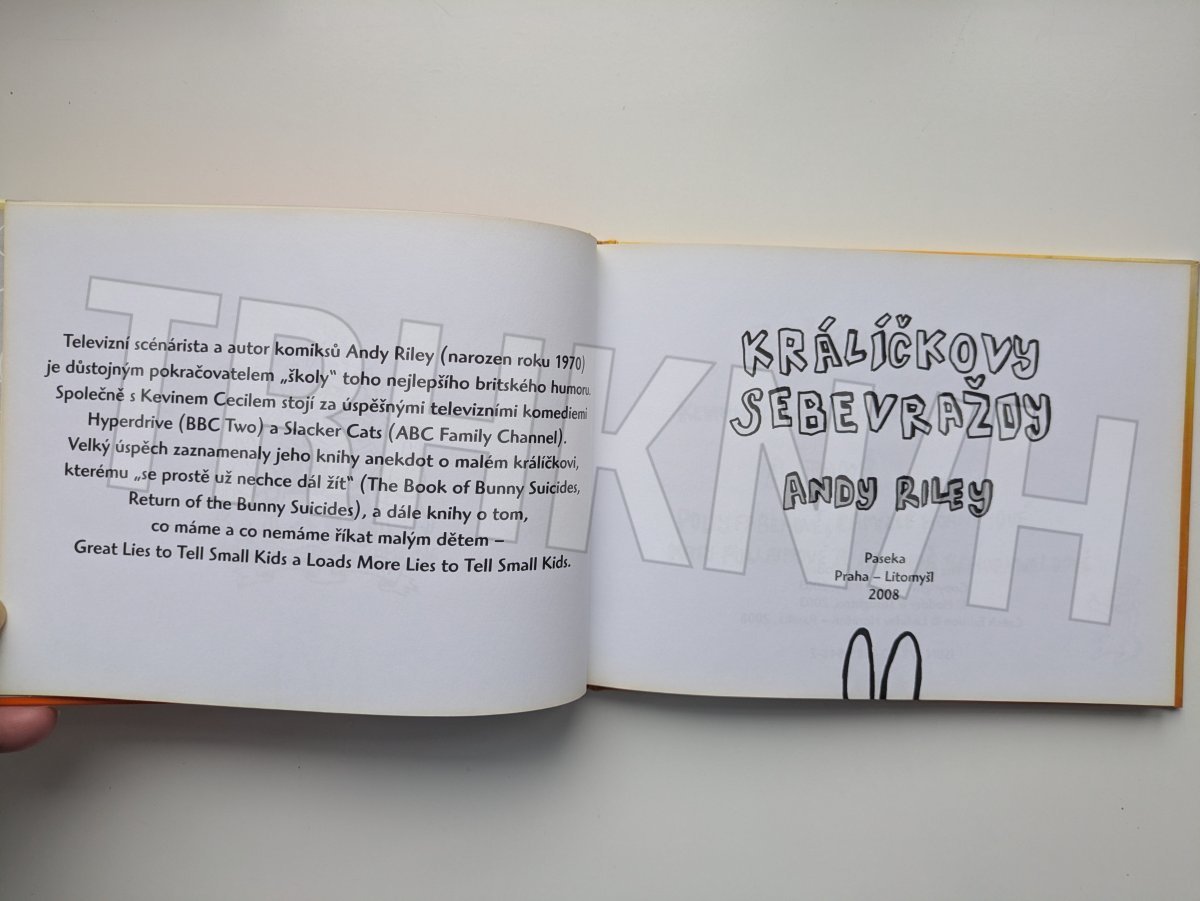 Televizní scénárista a autor komiksů Andy Riley (narozen roku 1970)
je důstojným pokračovatelem „školy“ toho nejlepšího britského humoru.
Společně s Kevinem Cecilem stojí za úspěšnými televizními komediemi
Hyperdrive (BBC Two) a Slacker Cats (ABC Family Channel).
Velký úspěch zaznamenaly jeho knihy anekdot o malém králíčkovi,
kterému „se prostě už nechce dál žít“ (The Book of Bunny Suicides,
Return of the Bunny Suicides), a dále knihy o tom,
co máme a co nemáme říkat malým dětem –
Great Lies to Tell Small Kids a Loads More Lies to Tell Small Kids.
KRÁLÍČKOVY
SEBEVRAŽDY
ANDY RILEY
Paseka
Praha – Litomyšl
2008
TRHKNIH